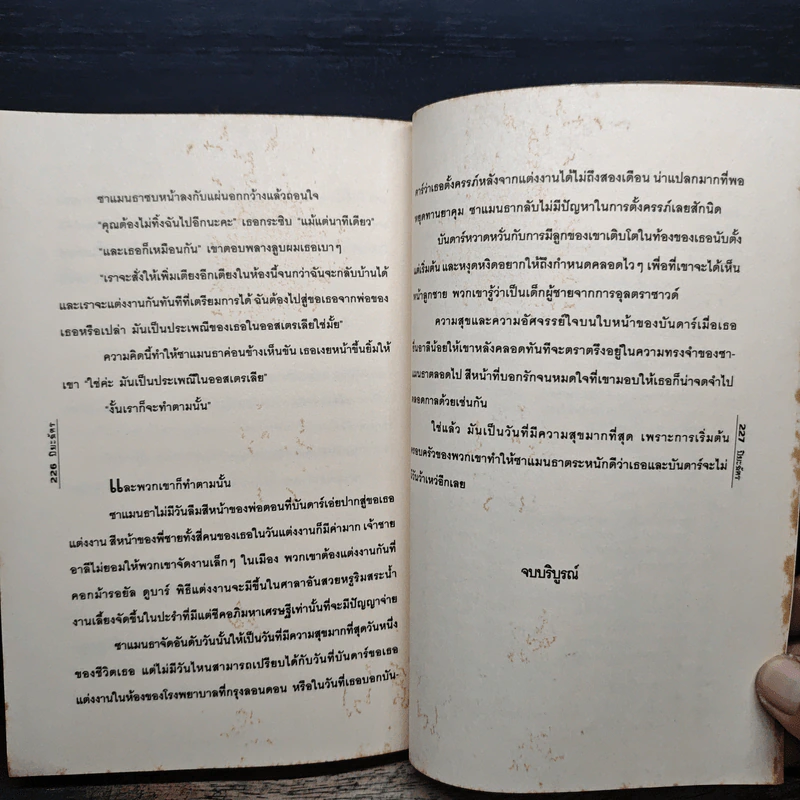 ซาแมนธาซบหน้าลงกับแผ่นอกกว้างแล้วถอนใจ
"คุณต้องไม่ทิ้งฉันไปอีกนะคะ" เธอกระซิบ "แม้แต่นาทีเดียว"
"และเธอก็เหมือนกัน" เขาตอบพลางลูบผมเธอเบาๆ
"เราจะสั่งให้เพิ่มเตียงอีกเตียงในห้องนี้จนกว่าฉันจะกลับบ้านได้
และเราจะแต่งงานกันทันทีที่เตรียมการได้ ฉันต้องไปสู่ขอเธอจากพ่อของ
เธอหรือเปล่า มันเป็นประเพณีของเธอในออสเตรเลียใช่มั้ย"
ความคิดนี้ทำให้ซาแมนธาค่อนข้างเห็นขัน เธอเงยหน้าขึ้นยิ้มให้
เขา "ใช่ค่ะ มันเป็นประเพณีในออสเตรเลีย"
"งั้นเราก็จะทำตามนั้น"
และพวกเขาก็ทำตามนั้น
ซาแมนธาไม่มีวันลืมสีหน้าของพ่อตอนที่บันดาร์เอ่ยปากสู่ขอเธอ
แต่งงาน สีหน้าของพี่ชายทั้งสี่คนของเธอในวันแต่งงานก็มีค่ามาก เจ้าชาย
อาลีไม่ยอมให้พวกเขาจัดงานเล็กๆ ในเมือง พวกเขาต้องแต่งงานกันที่
คอกม้ารอยัล ดูบาร์ พิธีแต่งงานจะมีขึ้นในศาลาอันสวยหรูริมสระน้ำ
งานเลี้ยงจัดขึ้นในปะรำที่มีแต่ชีคอภิมหาเศรษฐีเท่านั้นที่จะมีปัญญาจ่าย
ซาแมนธาจัดอันดับวันนั้นให้เป็นวันที่มีความสุขมากที่สุดวันหนึ่ง
ของชีวิตเธอ แต่ไม่มีวันไหนสามารถเปรียบได้กับวันที่บันดาร์ขอเธอ
แต่งงานในห้องของโรงพยาบาลที่กรุงลอนดอน หรือในวันที่เธอบอกบัน-
226 ปิยะฉัตร
ดาร์ว่าเธอตั้งครรภ์หลังจากแต่งงานได้ไม่ถึงสองเดือน น่าแปลกมากที่พอ
หยุดทานยาคุม ซาแมนธากลับไม่มีปัญหาในการตั้งครรภ์เลยสักนิด
บันดาร์หวาดหวั่นกับการมีลูกของเขาเติบโตในท้องของเธอนับตั้ง
แต่เริ่มต้น และหงุดหงิดอยากให้ถึงกำหนดคลอดไวๆ เพื่อที่เขาจะได้เห็น
หน้าลูกชาย พวกเขารู้ว่าเป็นเด็กผู้ชายจากการอุลตราซาวด์
ความสุขและความอัศจรรย์ใจบนใบหน้าของบันดาร์เมื่อเธอ
อาลีน้อยให้เขาหลังคลอดทันทีจะตราตรึงอยู่ในความทรงจำของซา-
แมนธาตลอดไป สีหน้าที่บอกรักจนหมดใจที่เขามอบให้เธอก็น่าจดจำไป
ตลอดกาลด้วยเช่นกัน
ใช่แล้ว มันเป็นวันที่มีความสุขมากที่สุด เพราะการเริ่มต้น
ครอบครัวของพวกเขาทำให้ซาแมนธาตระหนักดีว่าเธอและบันดาร์จะไม่
ว้าเหว่อีกเลย
จบบริบูรณ์
227 ปิยะฉัตร